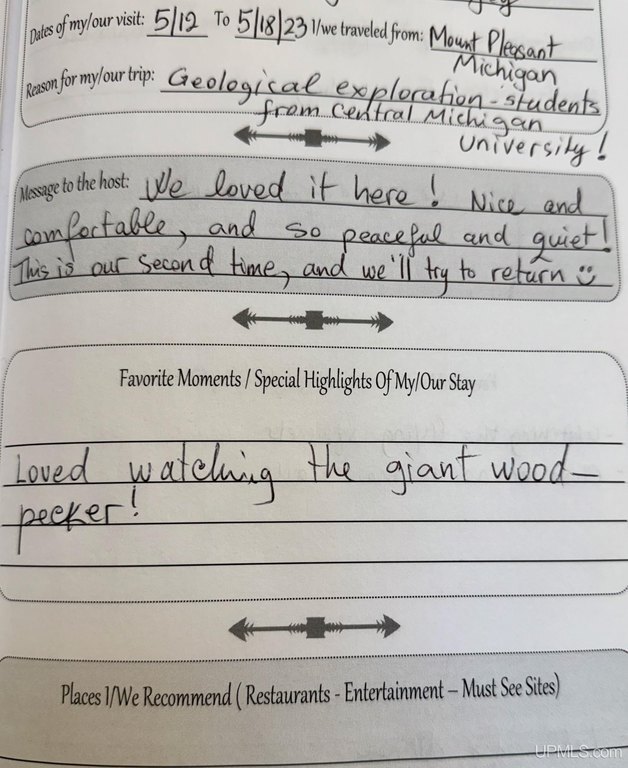 Dates of my/our visit: 5/12 To 5/18/23 I/we traveled from: Mount Pleasant
Michigan
Reason for my/our trip: Geological exploration - students
from Central Michigan
University!
Message to the host: We loved it here! Nice and
comfortable, and so peaceful and quiet!
This is our second time, and we'll try to return ☺
Favorite Moments / Special Highlights Of My/Our Stay
Loved watching the giant wood-
pecker!
Places I/We Recommend ( Restaurants - Entertainment – Must See Sites)
UPMLS.com